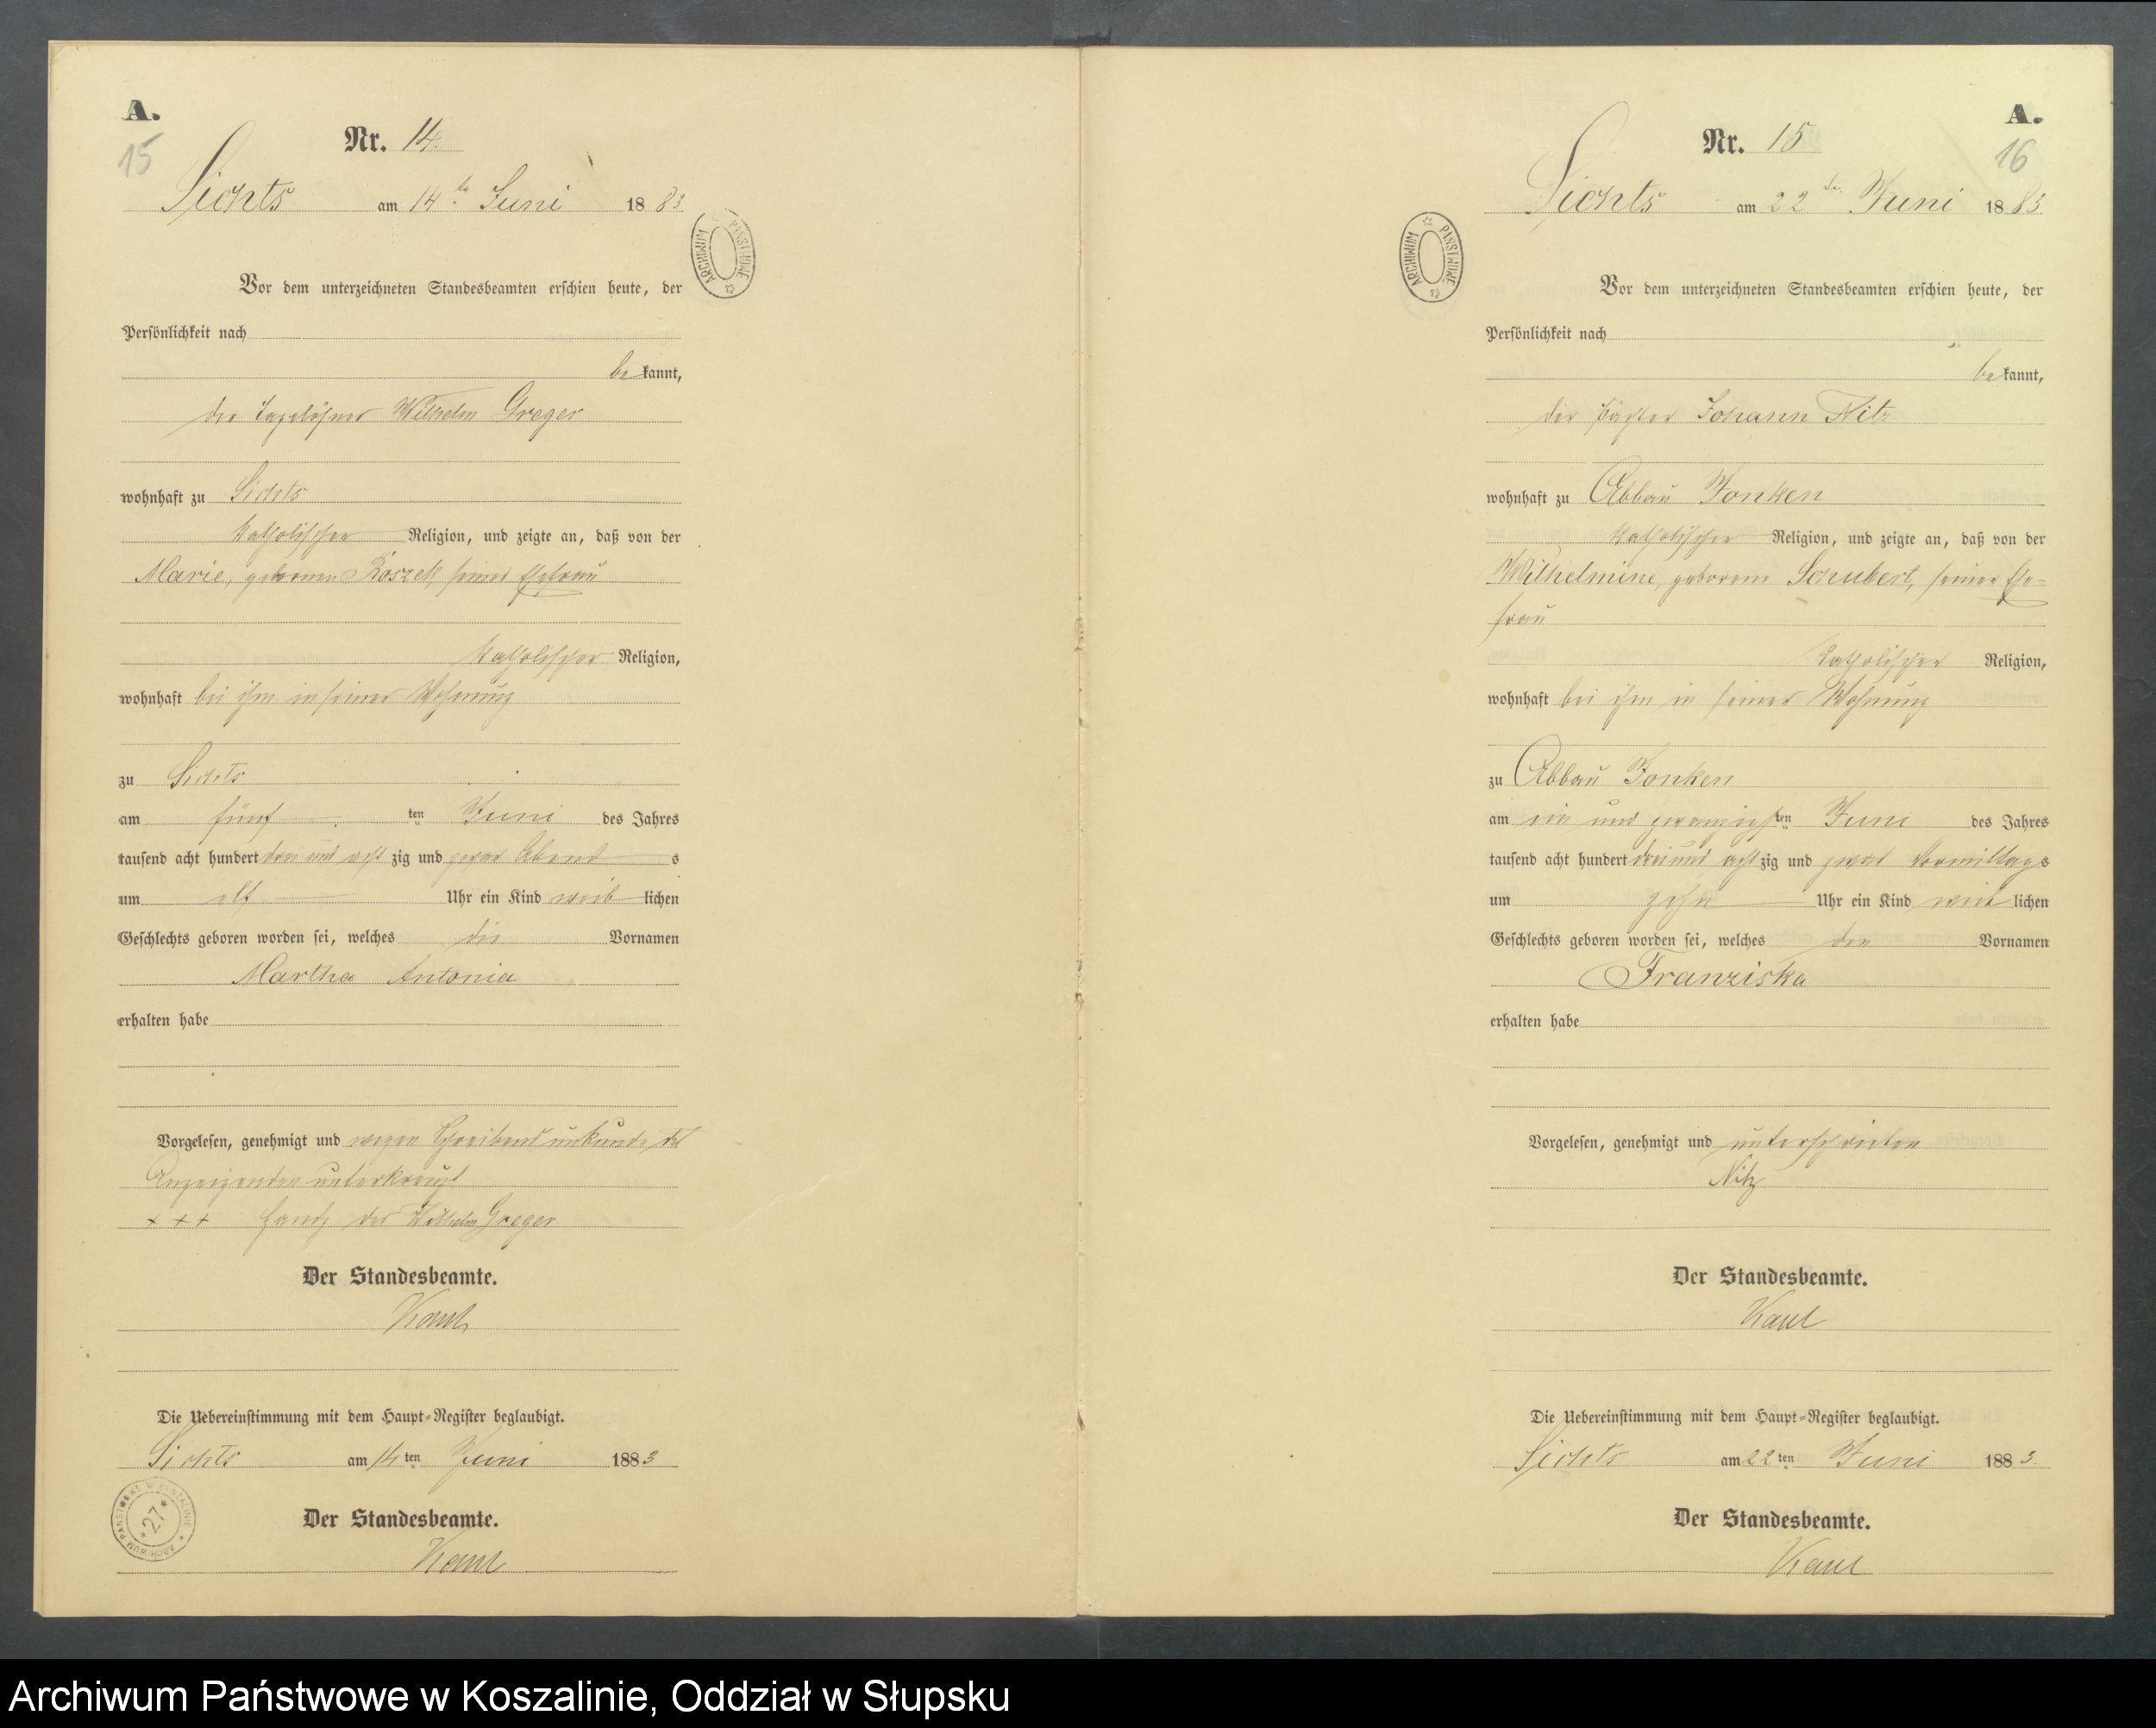 A.
15
Nr. 14.
Sichts am 14ten Juni 1883
ARCHIWUM PAŃSTWOWE
Vor dem unterzeichneten Standesbeamten erschien heute, der
Persönlichkeit nach
bekannt,
der Tagelöhner Wilhelm Greger
wohnhaft zu Sichts
katholischer Religion, und zeigte an, daß von der
Marie, geborenen Koszek, seiner Ehefrau
katholischer Religion,
wohnhaft bei ihm in seiner Wohnung
zu Sichts
am fünften Juni des Jahres
tausend acht hundert drei und achtzig und zwar Abends
um elf Uhr ein Kind weiblichen
Geschlechts geboren worden sei, welches die Vornamen
Martha Antonia
erhalten habe
Vorgelesen, genehmigt und wegen Schreibens unkunde des
Anzeigenden unterkreuzt
+++ Handz. des Wilhelm Greger
Der Standesbeamte.
Kaul
Die Uebereinstimmung mit dem Haupt-Register beglaubigt.
Sichts am 14ten Juni 1883
Der Standesbeamte.
Kaul
ARCHIWUM PAŃSTWOWE W KOSZALINIE
*27*
A.
16
Nr. 15
Sichts am 22ten Juni 1883
ARCHIWUM PAŃSTWOWE
Vor dem unterzeichneten Standesbeamten erschien heute, der
Persönlichkeit nach
bekannt,
der Pächter Johann Nitz
wohnhaft zu Abbau Jonken
katholischer Religion, und zeigte an, daß von der
Wilhelmine, geborenen Schubert, seiner Ehe-
frau
katholischer Religion,
wohnhaft bei ihm in seiner Wohnung
zu Abbau Jonken
am ein und zwanzigsten Juni des Jahres
tausend acht hundert drei und achtzig und zwar Vormittags
um zehn Uhr ein Kind weiblichen
Geschlechts geboren worden sei, welches den Vornamen
Franziska
erhalten habe
Vorgelesen, genehmigt und unterschrieben
Nitz
Der Standesbeamte.
Kaul
Die Uebereinstimmung mit dem Haupt-Register beglaubigt.
Sichts am 22ten Juni 1883.
Der Standesbeamte.
Kaul
Archiwum Państwowe w Koszalinie, Oddział w Słupsku